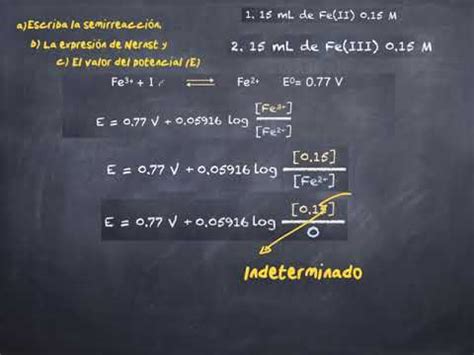 a)Escriba la semirreacción
b) La expresión de Nernst y
c) El valor del potencial (E)
1. 15 mL de Fe(II) 0.15 M
2. 15 mL de Fe(III) 0.15 M
Fe³⁺ + 1 ⇌ Fe²⁺ E⁰= 0.77 V
E = 0.77 V + 0.05916 log [Fe³⁺] / [Fe²⁺]
E = 0.77 V + 0.05916 log [0.15] / [Fe²⁺]
E = 0.77 V + 0.05916 log [0.15] / 0
Indeterminado